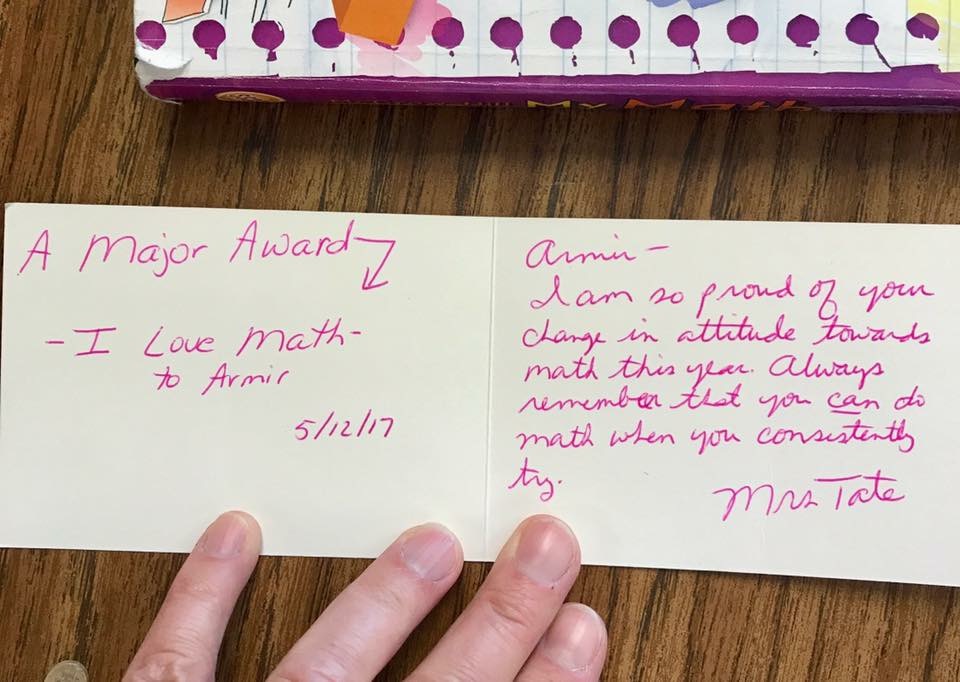 My Math
A Major Award
- I Love Math -
to Armir
5/12/17
Armir -
I am so proud of your
change in attitude towards
math this year. Always
remember that you can do
math when you consistently
try.
Mrs Tate